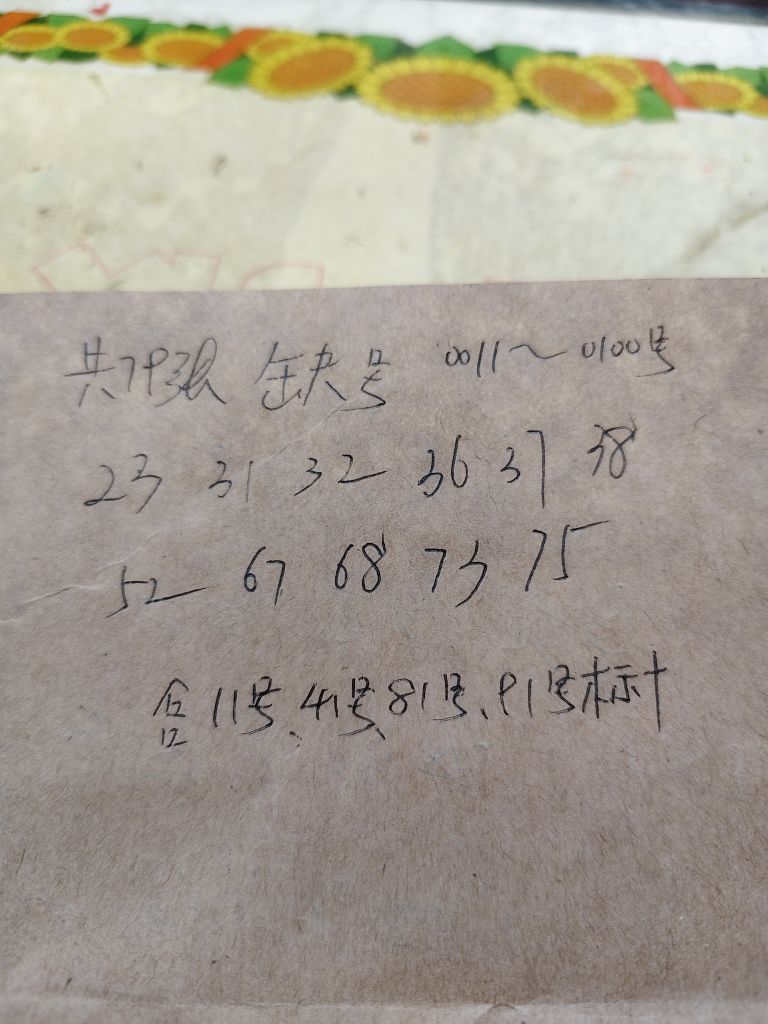 共79张 缺号 0011～0100号
23 31 32 36 37 38
52 67 68 73 75
含11号、41号、81号、91号标十